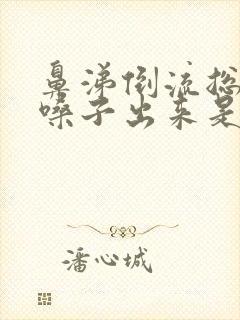 鼻涕倒流总
嗓子出来是
潘心城